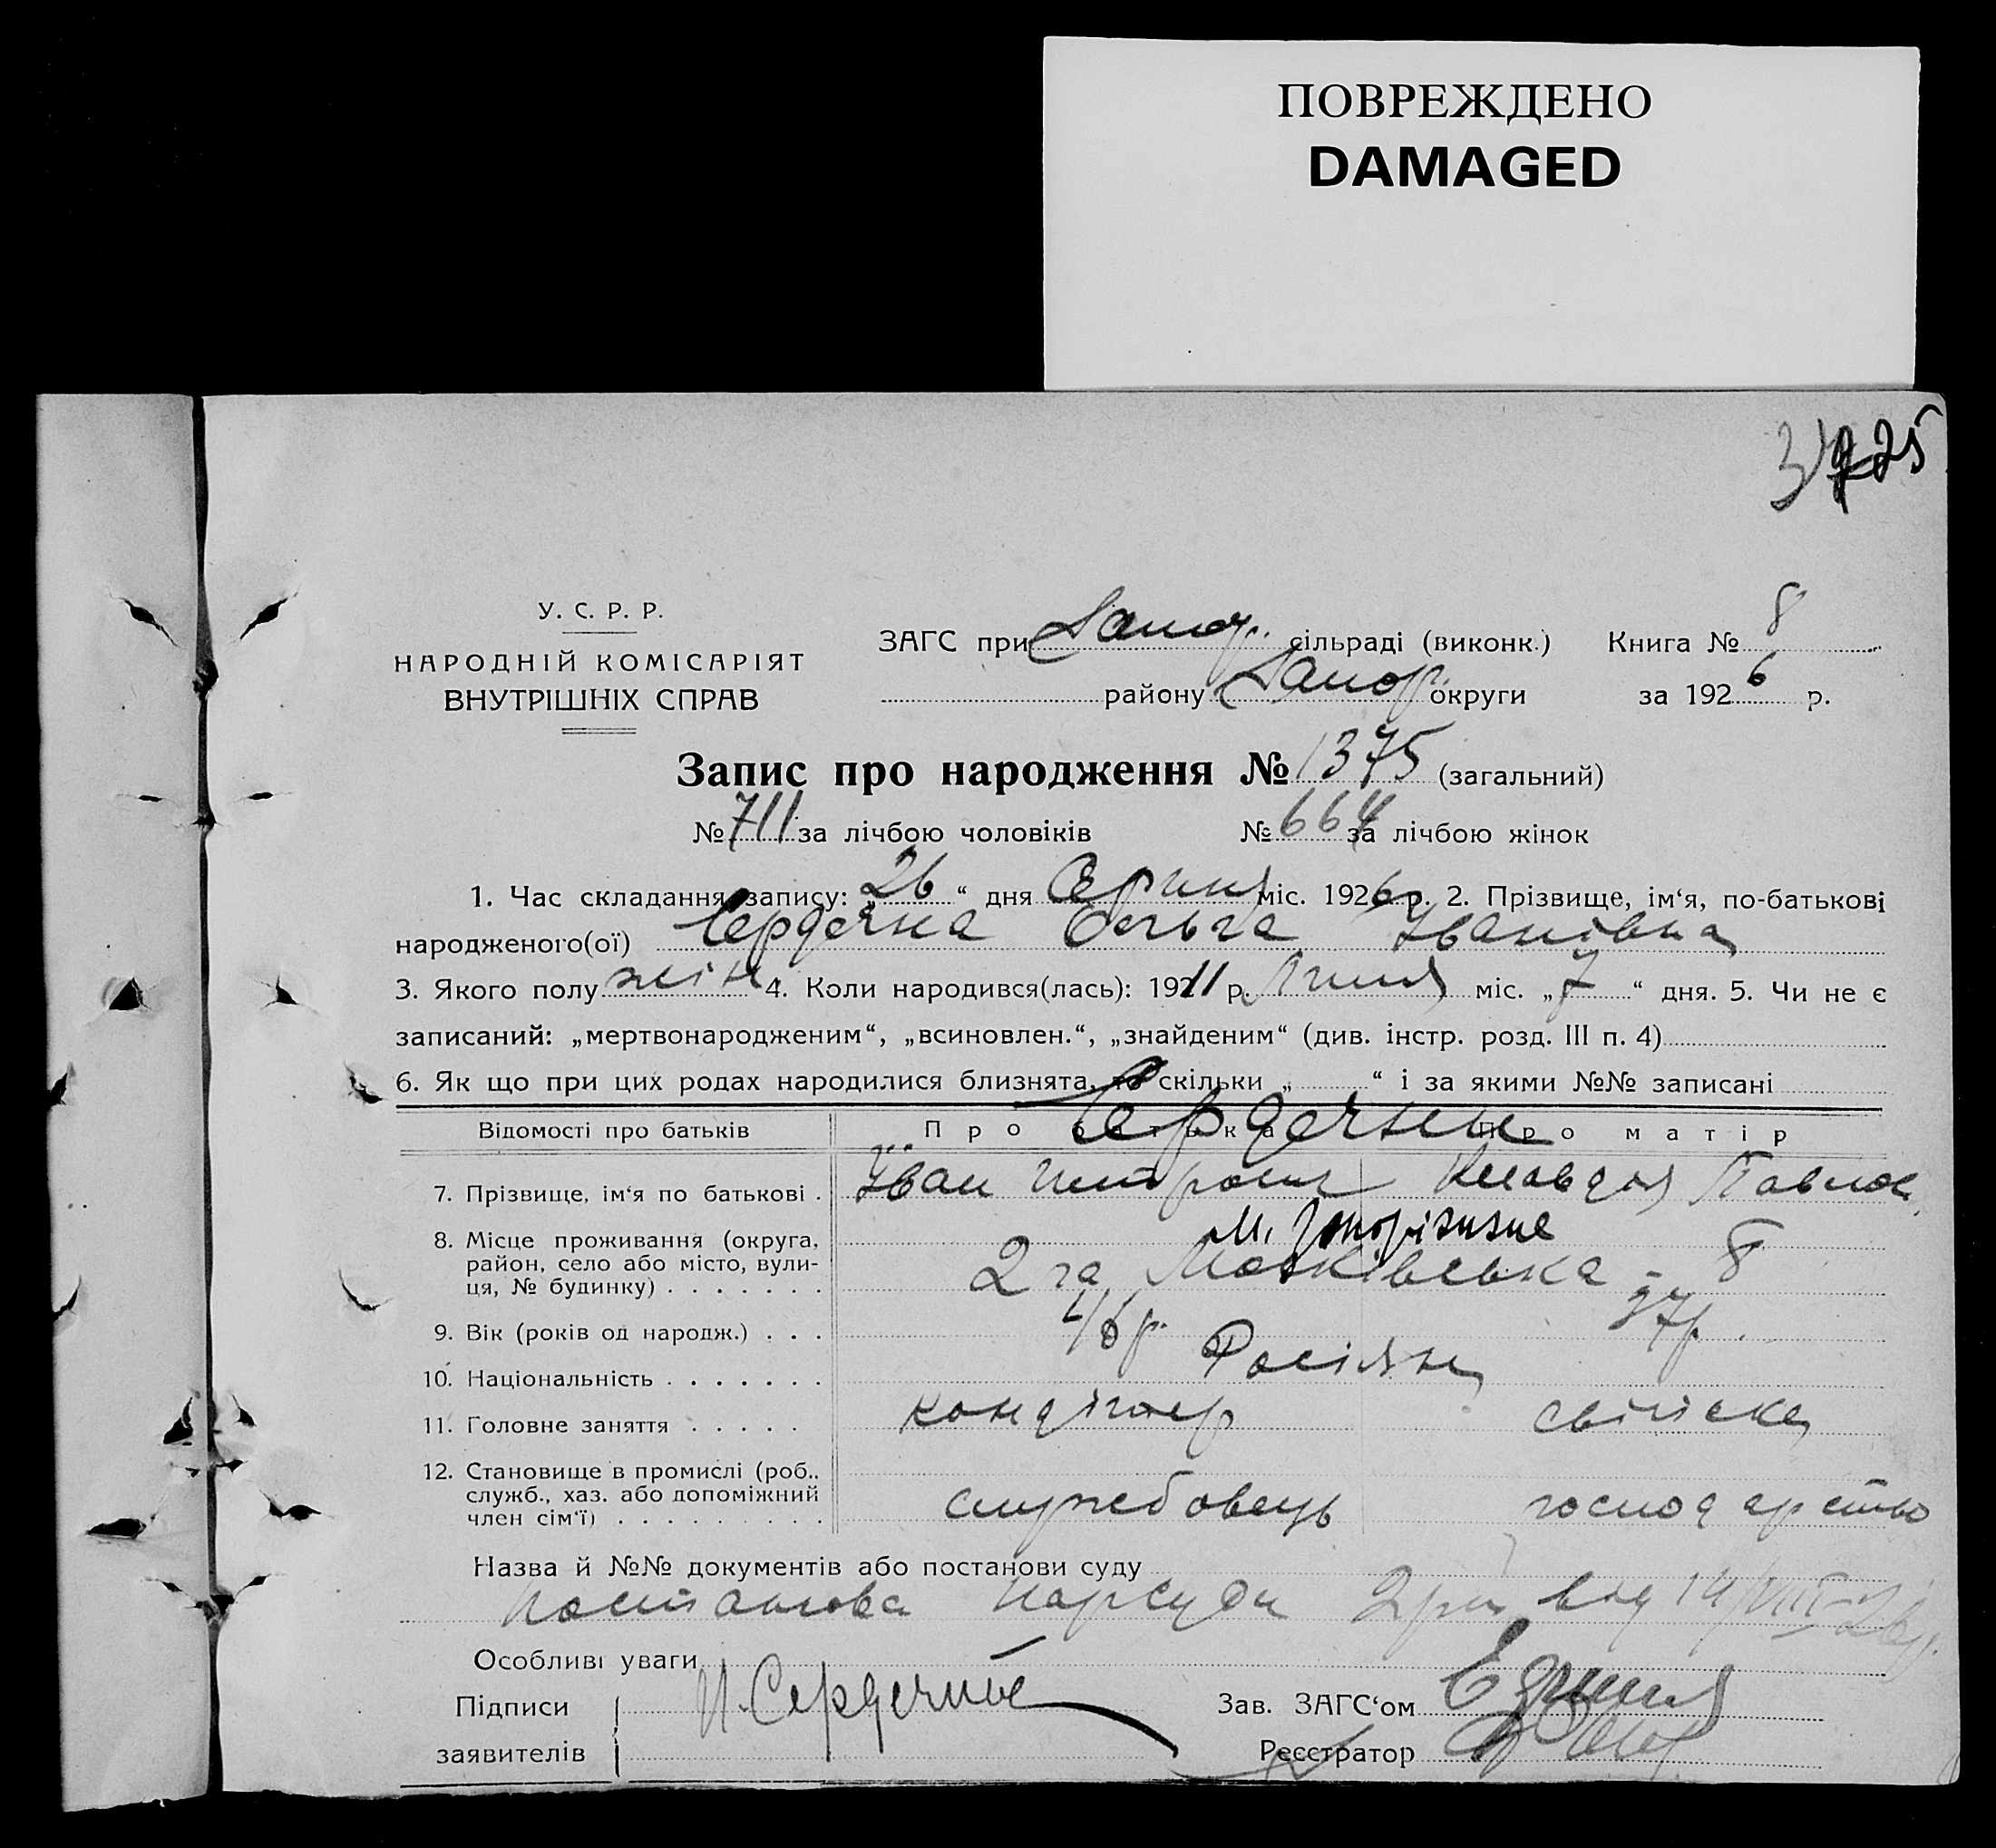 ПОВРЕЖДЕНО
DAMAGED
25
У. С. Р. Р.
НАРОДНІЙ КОМІСАРІЯТ
ВНУТРІШНІХ СПРАВ
ЗАГС при Запор. сільраді (виконк.) Книга № 8
району Запор. округи за 1926 р.
Запис про народження № 1375 (загальний)
№ 711 за лічбою чоловіків № 664 за лічбою жінок
1. Час складання запису: „26“ дня Серпня міс. 1926 р. 2. Прізвище, ім'я, по-батькові
народженого(ої) Сердечна Ольга Іванівна
3. Якого полу жін 4. Коли народився(лась): 1911 р. Липня міс. „7“ дня. 5. Чи не є
записаний: „мертвонародженим“, „всиновлен.“, „знайденим“ (див. інстр. розд. III п. 4)
6. Як що при цих родах народилися близнята, то скільки „ “ і за якими №№ записані
Відомості про батьків Про батька Про матір
Сердечни
7. Прізвище, ім'я по батькові . Іван Клавдія Павлов.
8. Місце проживання (округа, м. Запоріжжє
район, село або місто, вули- 2га Московська - 8
ця, № будинку) . . . . . . .
9. Вік (років од народж.) . . . 46р. 37р.
10. Національність . . . . . . . Росіяни
11. Головне заняття . . . . . кондітер свійське
12. Становище в промислі (роб..
служб., хаз. або допоміжний службовець господарство
член сім'ї) . . . . . . . . .
Назва й №№ документів або постанови суду
постанова Нарсуду 2 від 14/VIII-26р.
Особливі уваги
Підписи И. Сердечный Зав. ЗАГС'ом
заявителів Реєстратор